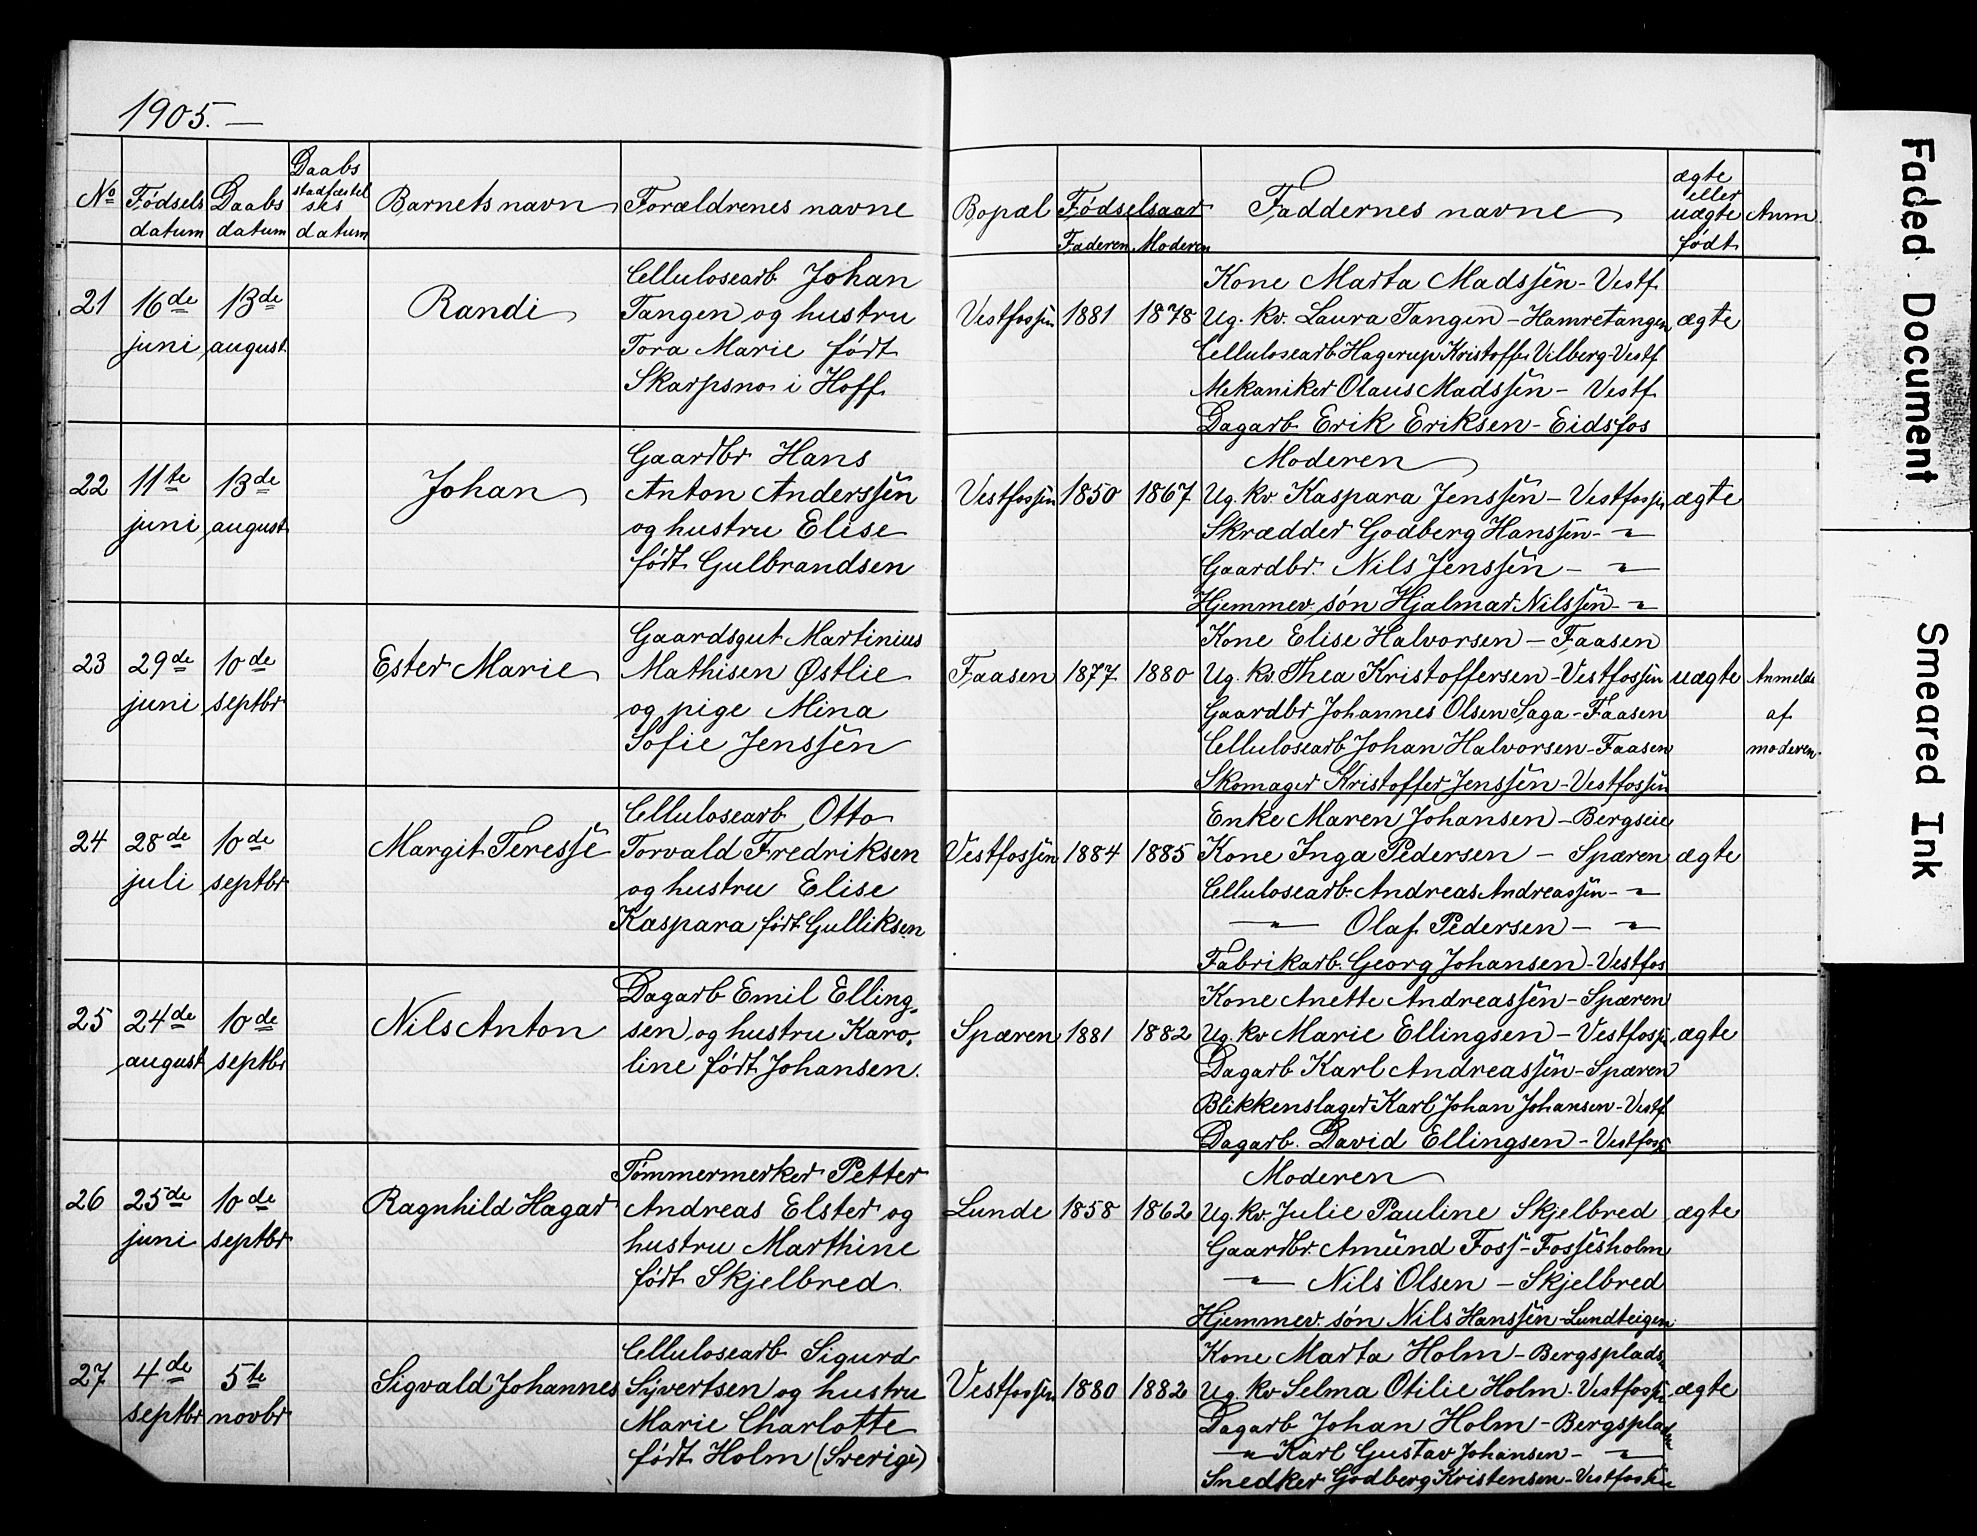 1905. —
No
Fødsels datum
Daabs datum
Daabs stadfæstelses datum
Barnets navn
Forældrenes navne
Bopæl
Fødselsaar
Faderen
Moderen
Faddernes navne
ægte eller uægte født
Anm.
21
16de juni
13de august
Randi
Cellulosearb Johan
Tangen og hustru
Tora Marie født
Skarpsno i Hoff
Vestfossen
1881
1878
Kone Marta Madssen - Vestf.
Ug. kv. Laura Tangen - Hamretangen
Cellulosearb Hagerup Kristoffer Vilberg - Vestf
Mekaniker Olaus Madssen - Vestf.
Dagarb. Erik Eriksen - Eidsfos
ægte
22
11te juni
13de august
Johan
Gaardbr Hans
Anton Anderssen
og hustru Elise
født Gulbrandsen
Vestfossen
1850
1867
Moderen
Ug. kv. Kaspara Jenssen - Vestfossen
Skrædder Godberg Hanssen - "
Gaardbr. Nils Jenssen - "
Hjemmev. søn Hjalmar Nilssen - "
ægte
23
29de juni
10de septbr
Ester Marie
Gaardsgut Martinius
Mathisen Østlie
og pige Mina
Sofie Jenssen
Faasen
1877
1880
Kone Elise Halvorsen - Faasen
Ug. kv. Thea Kristoffersen - Vestfossen
Gaardbr Johannes Olsen Saga - Faasen
Cellulosearb Johan Halvorsen - Faasen
Skomager Kristoffer Jenssen - Vestfossen
uægte
Anmeldt
af
moderen.
24
28de juli
10de septbr
Margit Teresse
Cellulosearb Otto
Torvald Fredriksen
og hustru Elise
Kaspara født Gulliksen
Vestfossen
1884
1885
Enke Maren Johansen - Bergseie
Kone Inga Pedersen - Spæren
Cellulosearb. Andreas Andreassen - "
" Olaf Pedersen - "
Fabrikarb. Georg Johansen - Vestfos
ægte
25
24de august
10de septbr
Nils Anton
Dagarb Emil Elling-
sen og hustru Karo-
line født Johansen.
Spæren
1881
1882
Kone Anette Andreassen - Spæren
Ug. kv Marie Ellingsen - Vestfoss
Dagarb Karl Andreassen - Spæren
Blikkenslager Karl Johan Johansen - Vestf
Dagarb. David Ellingsen - Vestfoss
ægte
26
25de juni
10de septbr
Ragnhild Hagar
Tømmermerker Petter
Andreas Elster og
hustru Marthine
født Skjelbred.
Lunde
1858
1862
Moderen
Ug. kv. Julie Pauline Skjelbred
Gaardbr. Amund Foss - Fossesholm
" Nils Olsen - Skjelbred
Hjemmev. søn Nils Hanssen - Lundteigen
ægte
27
4de septbr
5te novbr
Sigvald Johannes
Cellulosearb Sigurd
Syvertsen og hustru
Marie Charlotte
født Holm (Sverige)
Vestfossen
1880
1882
Kone Marta Holm - Bergsplads
Ug. kv Selma Otilie Holm - Vestfossen
Dagarb Johan Holm - Bergspladsen
" Karl Gustav Johansen - "
Snedker Godberg Kristensen - Vestfossen
ægte
Faded Document
Smeared Ink